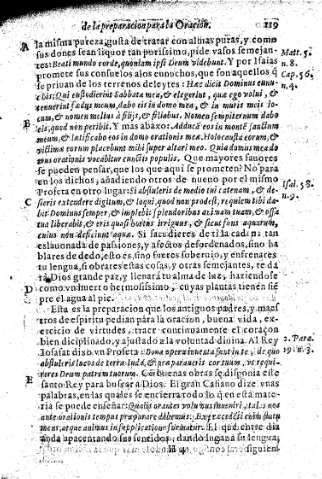 de la preparacion para la Oracion. 119
A la misma pureza, gusta de tratar con almas puras, y como
sus dones sean liquor tan purissimo, pide vasos semejan-
tes: Beati mundo corde, quoniam ipsi Deum videbunt. Y por Isaias
Matt. 5.
n. 8.
promete sus consuelos a los eunuchos, que son aquellos q̃
Cap. 56.
se privan de los terrenos deleytes: Haec dicit Dominus eunu-
n. 4.
chis: Qui custodierint Sabbata mea, & elegerint, quae ego volui, &
tenuerint foedus meum, dabo eis in domo mea, & in muris meis lo-
B cum, & nomen melius à filijs, & filiabus. Nomen sempiternum dabo
eis, quod non peribit. Y mas abaxo: Adducā eos in montē sanctum
meum, & laetificabo eos in domo orationis meae. Holocausta eorum, &
victimae eorum placebunt mihi super altari meo. Quia domus mea do
mus orationis vocabitur cunctis populis. Que mayores favores
se pueden pensar, que los que aqui se prometen? No para
en los dichos, añadiendo otros de nuevo por el mismo
Profeta en otro lugar: Si abstuleris de medio tui catenam, & de-
Isai. 58.
C sieris extendere digitum, & loqui, quod non prodest, requiem tibi da-
n. 9.
bit Dominus semper, & implebit splendoribus animam tuam, & ossa
tua liberabit, & eris quasi hortus irriguus, & sicut fons aquarum,
cuius non deficient aquae. Si sacudieres de ti la cadena tan
eslauonada de passiones, y afectos desordenados, sino ha
blares de dedo, esto es, sino fueres soberuio, y enfrenares
tu lengua, si obrares estas cosas, y otras semejantes, te da
rà Dios grande paz, y llenarà tu alma de luz, haziendose
D como vn huerto hermosissimo, cuyas plantas tienen siē
pre el agua al pie.
Esta es la preparacion que los antiguos padres, y maes
tros de espiritu pedian para la oracion, buena vida, ex-
ercicio de virtudes, traer continuamente el coraçon
bien diciplinado, y ajustado a la voluntad diuina. Al Rey
Iosafat dixo vn Profeta: Bona opera inventa sunt in te, eo quòd
2. Para.
abstuleris lucos de terra Iudà, & praeparaveris cor tuum, ut requi-
19. n. 3.
reres Deum patrum tuorum. Con buenas obras se disponia este
E santo Rey para buscar a Dios. El gran Casiano dize vnas
palabras, en las quales se encierra todo lo q̃ en esta mate-
ria se puede enseñar: Quales orantes volumus inveniri, tales nos
ante orationis tempus praeparare debemus. Ex praecedenti enim statu
mens, atque animus in supplicatione formatur. El que entre dia
anda apacentando sus sentidos, dando larga a su lengua,